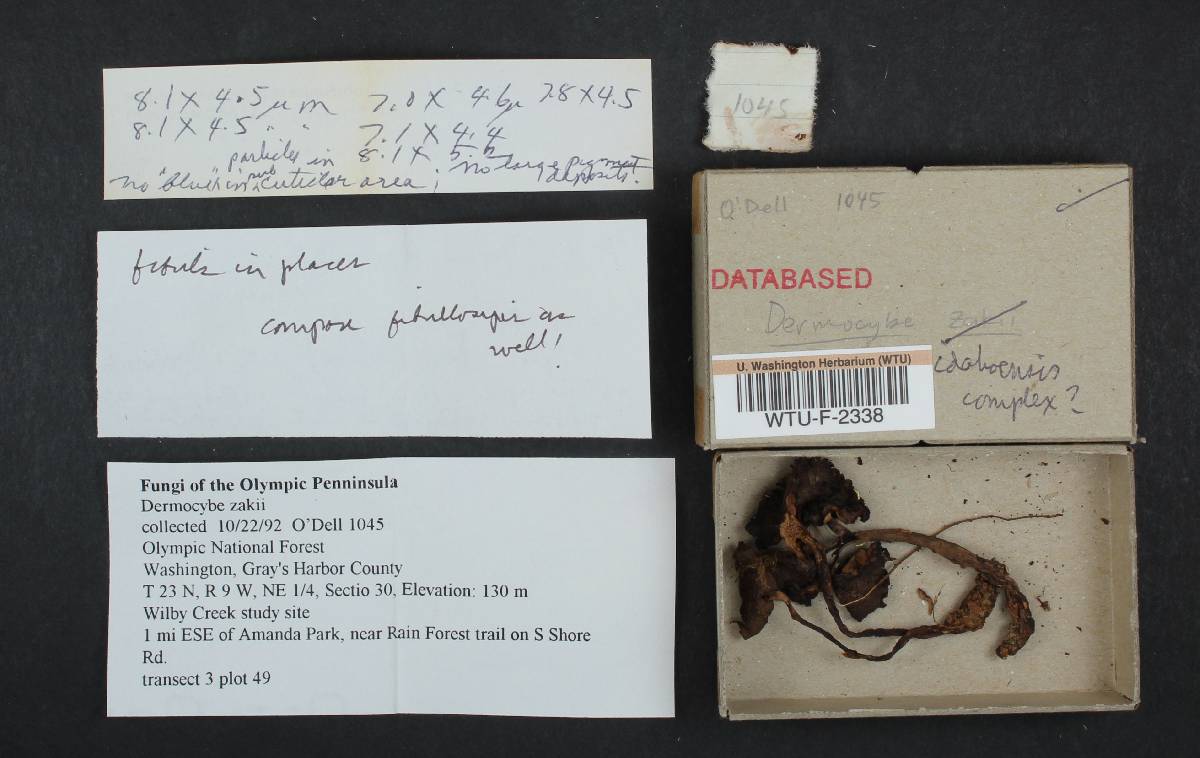 8.1 X 4.5 µm 7.0 X 4.6µ 7.8 X 4.5
8.1 X 4.5 " " 7.1 X 4.4
particles in 8.1 X 5.5
no "blue" in sub cuticular area; no large pigment deposits.
in places
compare fibrillosipes as
well!
Fungi of the Olympic Penninsula
Dermocybe zakii
collected 10/22/92 O'Dell 1045
Olympic National Forest
Washington, Gray's Harbor County
T 23 N, R 9 W, NE 1/4, Sectio 30, Elevation: 130 m
Wilby Creek study site
1 mi ESE of Amanda Park, near Rain Forest trail on S Shore
Rd.
transect 3 plot 49
1045
O'Dell 1045
DATABASED
Dermocybe zakii
idahoensis
complex?
U. Washington Herbarium (WTU)
WTU-F-2338